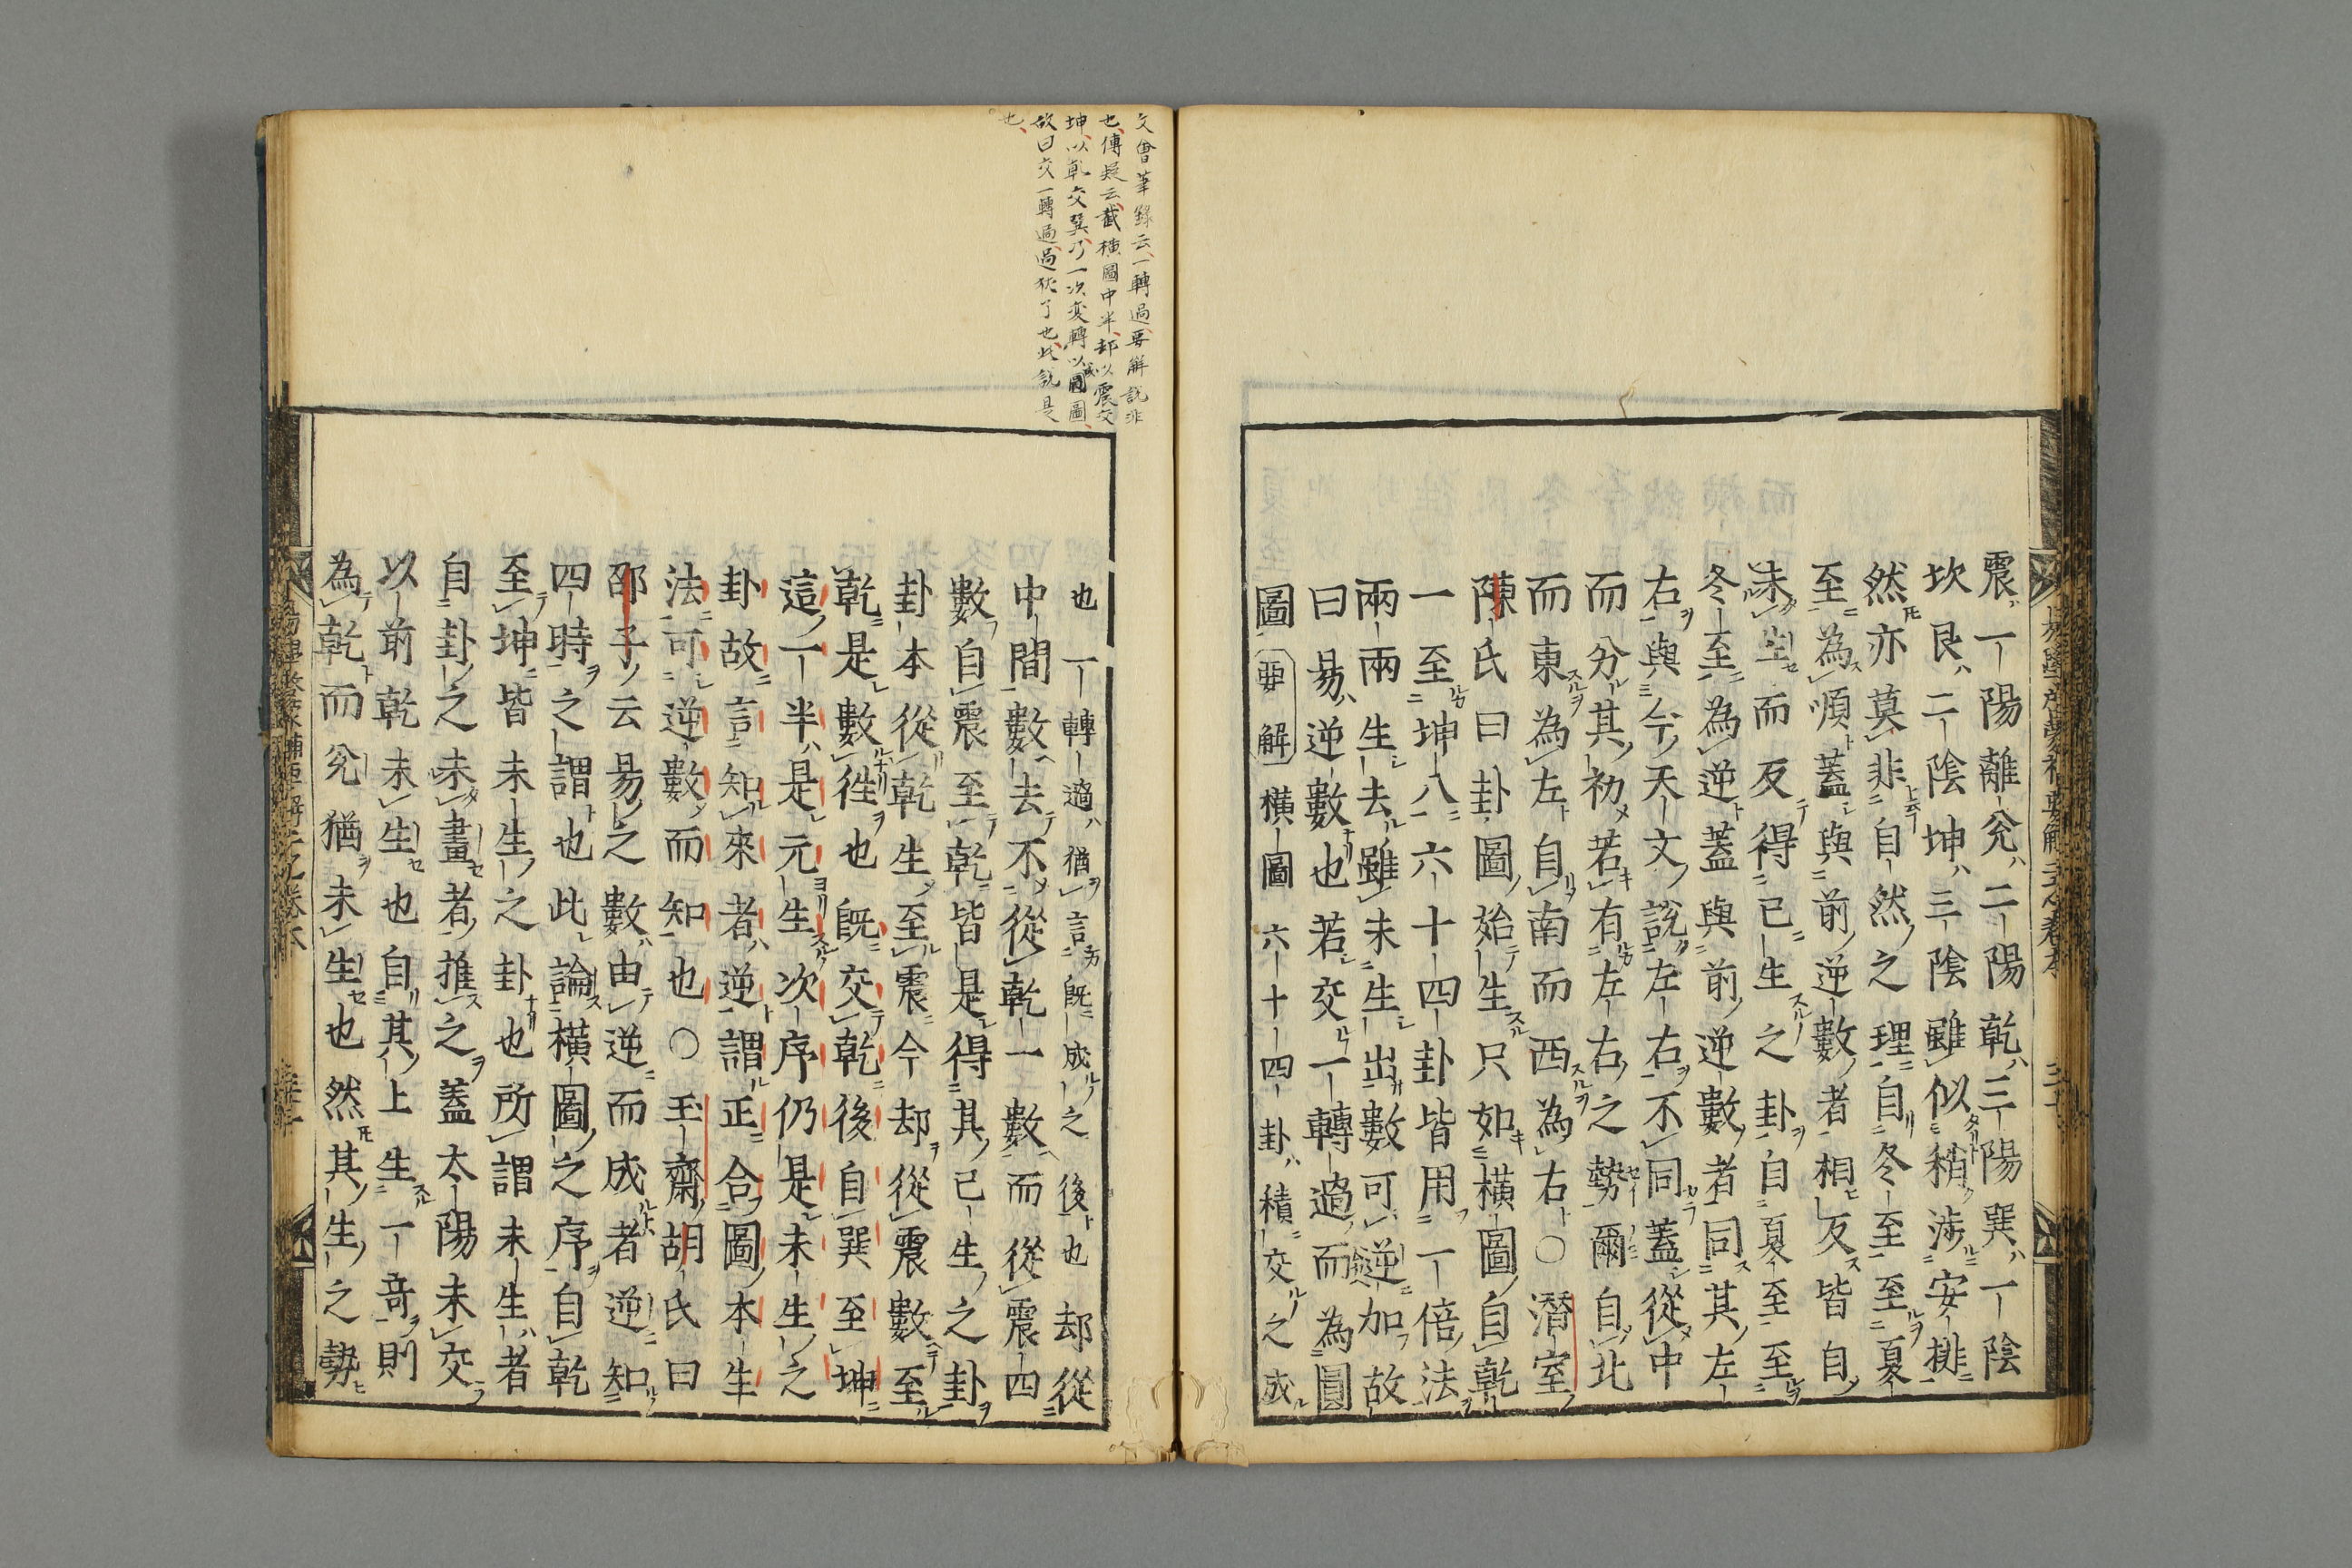 震一陽離兊二陽乾三陽巽一陰
坎艮二陰坤三陰雖似稍涉安排
然亦莫非自然之理自冬至至夏
至為順蓋與前逆數者相反皆自
未生而反得已生之卦自夏至至
冬至為逆蓋與前逆數者同其左
右與今天文說左右不同蓋從中
而分其初若有左右之勢爾自北
而東為左自南而西為右○潛室
陳氏曰卦圖始生只如橫圖自乾
一至坤八六十四卦皆用一倍法
兩兩生去雖未生出數可逆加故
曰易逆數也若交一轉過而為圓
圖 要解 橫圖六十四卦積交之成
文會筆録云一轉過要解說非
也傳疑云截橫圖中半却以震交
坤以乾交巽乃一次変轉以成圓圖
故曰交一轉過過猶了也此說是
也
也一轉過猶言既成之後也却從
中間數去不從乾一數而從震四
數自震至乾皆是得其已生之卦
卦本從乾生至震今却從震數至
乾是數徃也既交乾後自巽至坤
這一半是元生次序仍是未生之
卦故言知來者逆謂正合圖本生
法可逆數而知也○玉齋胡氏曰
邵子云易之數由逆而成者逆知
四時之謂也此論橫圖之序自乾
至坤皆未生之卦也所謂未生者
自卦之未畫者推之蓋太陽未交
以前乾未生也自其上生一竒則
為乾而兊猶未生也然其生之勢